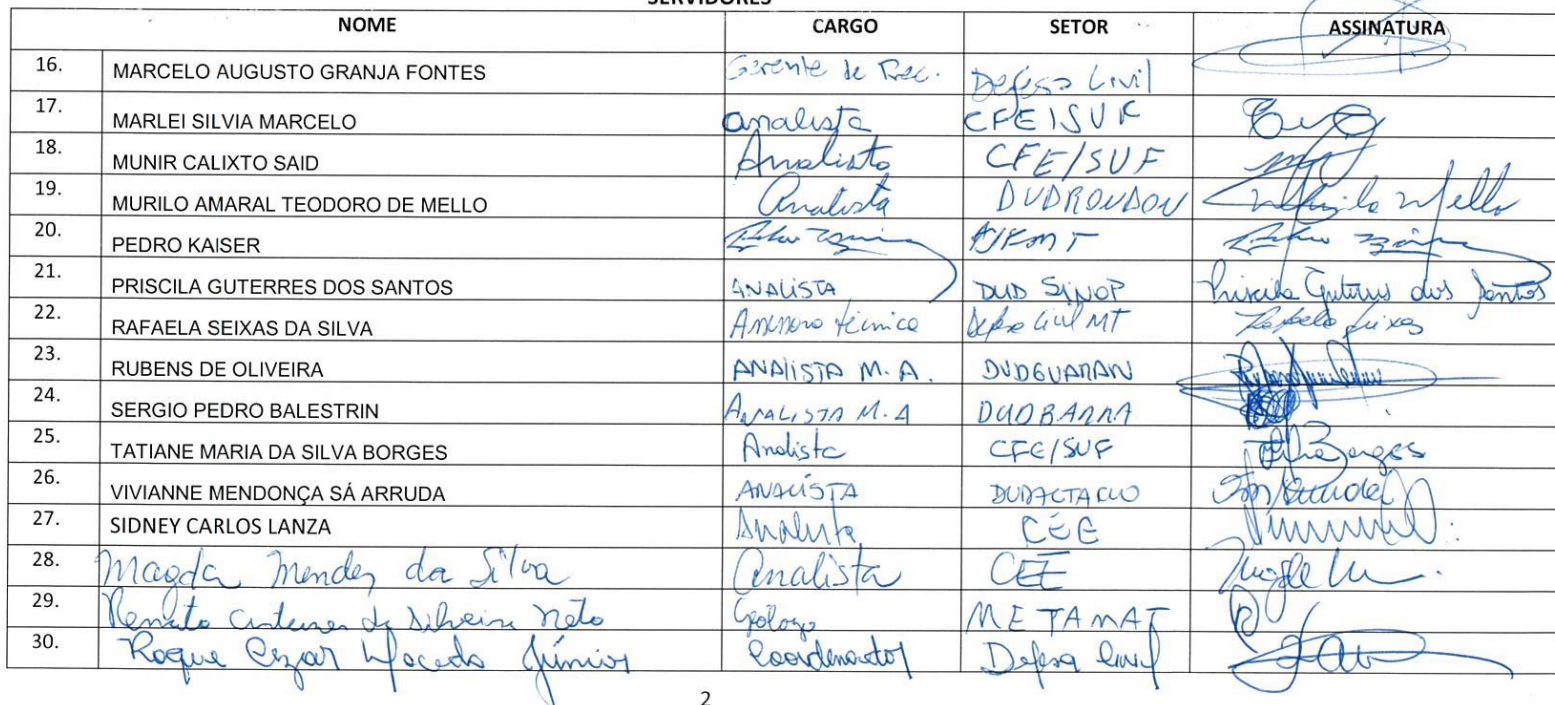 SERVIDORES
NOME CARGO SETOR ASSINATURA
16. MARCELO AUGUSTO GRANJA FONTES Gerente de Rec. Defesa Civil
17. MARLEI SILVIA MARCELO analista CFE/SUF
18. MUNIR CALIXTO SAID Analista CFE/SUF
19. MURILO AMARAL TEODORO DE MELLO Analista DUDRONDON Murilo Mello
20. PEDRO KAISER
21. PRISCILA GUTERRES DOS SANTOS ANALISTA DUD SINOP Priscila Guterres dos Santos
22. RAFAELA SEIXAS DA SILVA Assessora técnica Defesa Civil MT Rafaela Seixas
23. RUBENS DE OLIVEIRA ANALISTA M.A. DUDGUARAN
24. SERGIO PEDRO BALESTRIN ANALISTA M.A DUDBARRA
25. TATIANE MARIA DA SILVA BORGES Analista CFE/SUF Borges
26. VIVIANNE MENDONÇA SÁ ARRUDA ANALISTA
27. SIDNEY CARLOS LANZA Analista CEE
28. Magda Mendes da Silva analista CEE
29. Renato da Silveira Neto Geólogo METAMAT
30. Roque Cezar Macedo Júnior Coordenador Defesa Civil
2